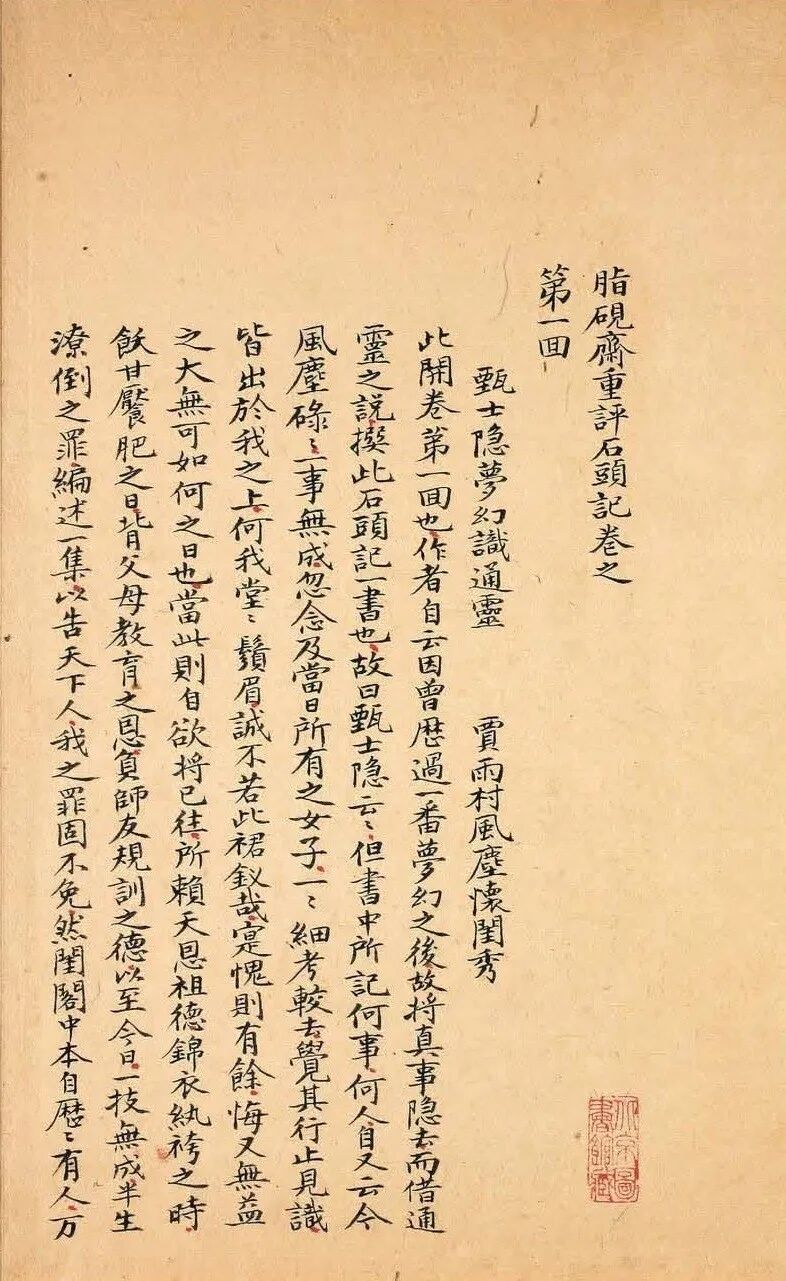 脂硯齋重評石頭記卷之
第一囬
甄士隐夢幻識通靈　賈雨村風塵懷閨秀
此開卷第一囬也作者自云因曾歷過一番夢幻之後故將真事隐去而借通
靈之說撰此石頭記一書也故曰甄士隐云〻但書中所記何事何人自又云今
風塵碌〻一事無成忽念及當日所有之女子一〻細考較去覺其行止見識
皆出於我之上何我堂〻鬚眉誠不若此裙釵哉寔愧則有餘悔又無益
之大無可如何之日也當此則自欲將已徃所賴天恩祖德錦衣紈袴之時
飫甘饜肥之日背父母教育之恩負師友規訓之德以至今日一技無成半生
潦倒之罪編述一集以告天下人我之罪固不免然閨閣中本自歷〻有人万
北京圖
書館藏